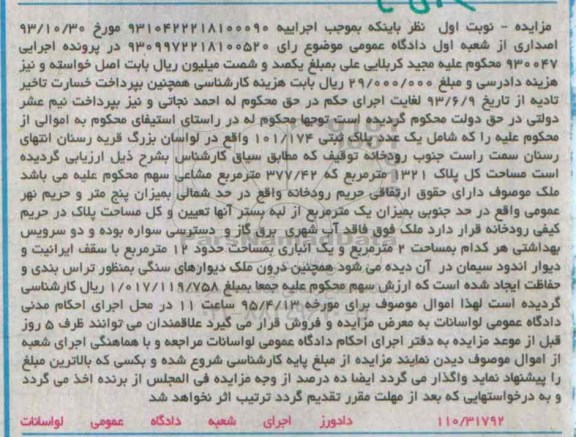 مزایده - نوبت اول نظر باینکه بموجب اجراییه ۹۳۱۰۴۲۲۲۱۸۱۰۰۰۹۰ مورخ ۹۳/۱۰/۳۰
اصداری از شعبه اول دادگاه عمومی موضوع رای ۹۳۰۹۹۷۲۲۱۸۱۰۰۵۲۰ در پرونده اجرایی
۹۳۰۰۴۷ محکوم علیه مجید کربلایی علی بمبلغ یکصد و شصت میلیون ریال بابت اصل خواسته و نیز
هزینه دادرسی و مبلغ ۲۹/۰۰۰/۰۰۰ ریال بابت هزینه کارشناسی همچنین بپرداخت خسارت تاخیر
تادیه از تاریخ ۹۳/۶/۹ لغایت اجرای حکم در حق محکوم له احمد نجاتی و نیز بپرداخت نیم عشر
دولتی در حق دولت محکوم گردیده است توجها محکوم له در راستای استیفای محکوم به اموالی از
محکوم علیه را که شامل یک عدد پلاک ثبتی ۱۰۱/۱۷۴ واقع در لواسان بزرگ قریه رسنان انتهای
رسنان سمت راست جنوب رودخانه توقیف که مطابق سیاق کارشناس بشرح ذیل ارزیابی گردیده
است مساحت کل پلاک ۱۳۲۱ مترمربع که ۳۷۷/۴۲ مترمربع مشاعی سهم محکوم علیه می باشد
ملک موصوف دارای حقوق ارتفاقی حریم رودخانه واقع در حد شمالی بمیزان پنج متر و حریم نهر
عمومی واقع در حد جنوبی بمیزان یک مترمربع از لبه بستر آنها تعیین و کل مساحت پلاک در حریم
کیفی رودخانه قرار دارد ملک فوق فاقد آب شهری برق گاز و دسترسی سواره بوده و دو سرویس
بهداشتی هر کدام بمساحت ۲ مترمربع و یک انباری بمساحت حدود ۱۲ مترمربع با سقف ایرانیت و
دیوار اندود سیمان در آن دیده می شود همچنین درون ملک دیوارهای سنگی بمنظور تراس بندی و
حفاظت ایجاد شده است که ارزش سهم محکوم علیه جمعا بمبلغ ۱/۰۱۷/۱۱۹/۷۵۸ ریال کارشناسی
گردیده است لهذا اموال موصوف برای مورخه ۹۵/۴/۱۳ ساعت ۱۱ در محل اجرای احکام مدنی
دادگاه عمومی لواسانات به معرض مزایده و فروش قرار می گیرد علاقمندان می توانند ظرف ۵ روز
قبل از موعد مزایده به دفتر اجرای احکام دادگاه عمومی لواسانات مراجعه و با هماهنگی اجرای شعبه
از اموال موصوف دیدن نمایند مزایده از مبلغ پایه کارشناسی شروع شده و بکسی که بالاترین مبلغ
را پیشنهاد نماید واگذار می گردد ایضا ده درصد از وجه مزایده فی المجلس از برنده اخذ می گردد
و به درخواستهایی که بعد از مهلت مقرر تقدیم گردد ترتیب اثر نخواهد شد
۱۱۰/۳۱۷۹۲ دادورز اجرای شعبه دادگاه عمومی لواسانات